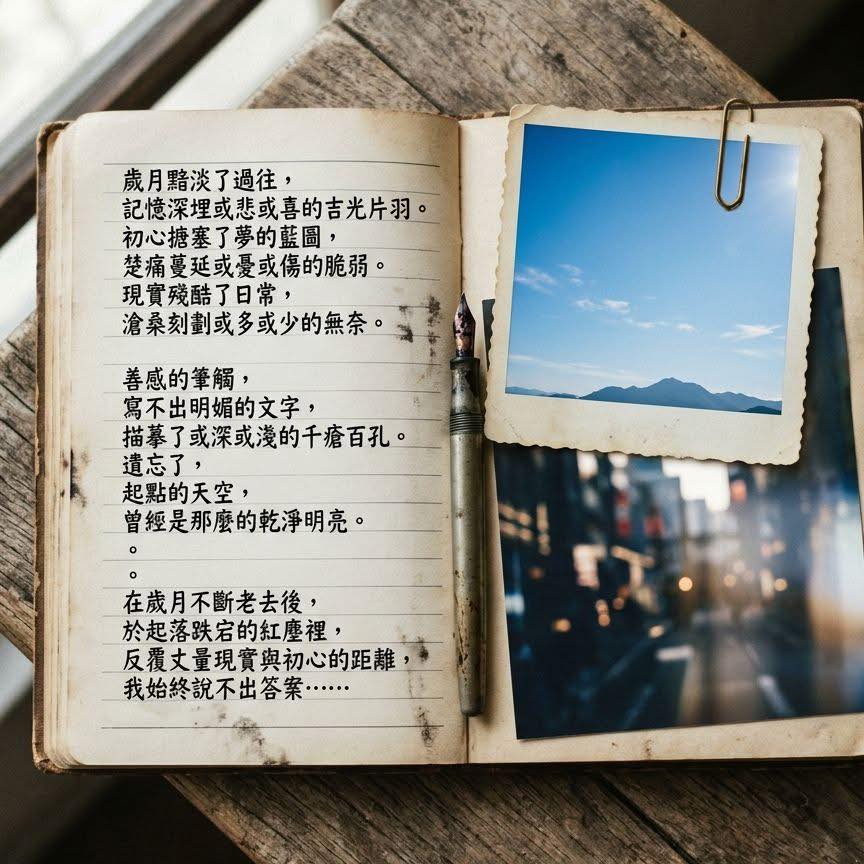 歲月黯淡了過往，
記憶深埋或悲或喜的吉光片羽。
初心搪塞了夢的藍圖，
楚痛蔓延或憂或傷的脆弱。
現實殘酷了日常，
滄桑刻劃或多或少的無奈。
善感的筆觸，
寫不出明媚的文字，
描摹了或深或淺的千瘡百孔。
遺忘了，
起點的天空，
曾經是那麼的乾淨明亮。
。
。
在歲月不斷老去後，
於起落跌宕的紅塵裡，
反覆丈量現實與初心的距離，
我始終說不出答案……